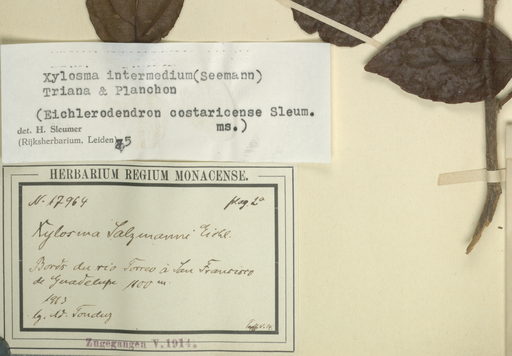 Xylosma intermedium(Seemann)
Triana & Planchon
(Eichlerodendron costaricense Sleum.
ms.)
det. H. Sleumer
(Rijksherbarium, Leiden) 75
HERBARIUM REGIUM MONACENSE.
N. 17964
plag 2a
Xylosma Salzmanni Eichl.
Bords du rio Torres à San Francisco
de Guadelupe 1100 m.
1893
lg. Ad. Tonduz
Zugegangen V.1914.